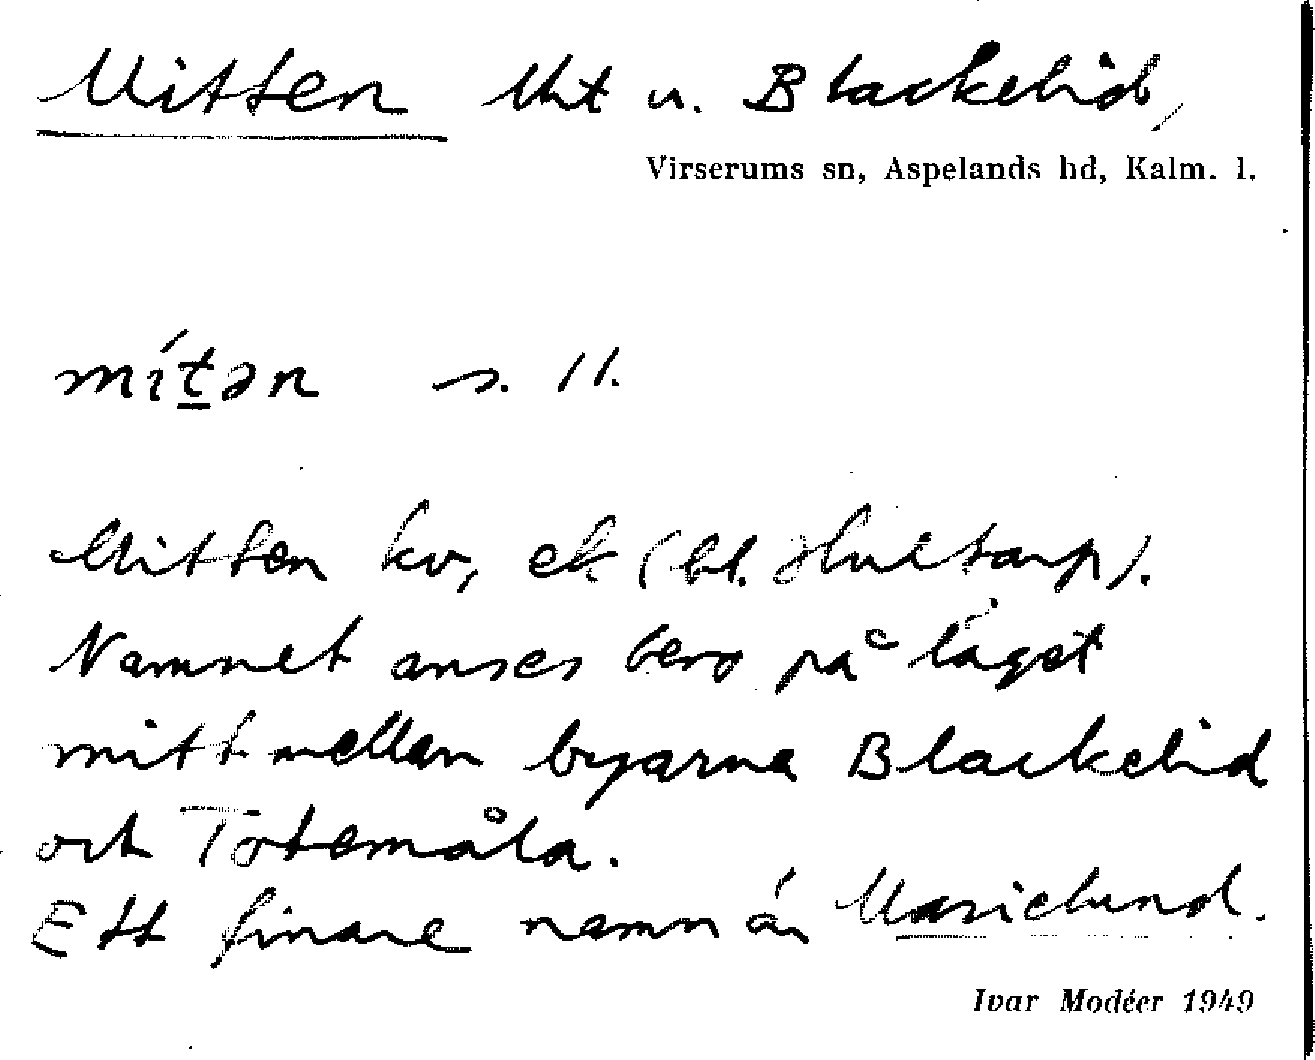 Mitten lht u. Blackelid,
Virserums sn, Aspelands hd, Kalm. l.
mítən s. 11.
Mitten kv, ek (bl. Hultarp).
Namnet anses bero på läget
mitt mellan byarna Blackelid
och Totemåla.
Ett finare namn är Marielund.
Ivar Modéer 1949